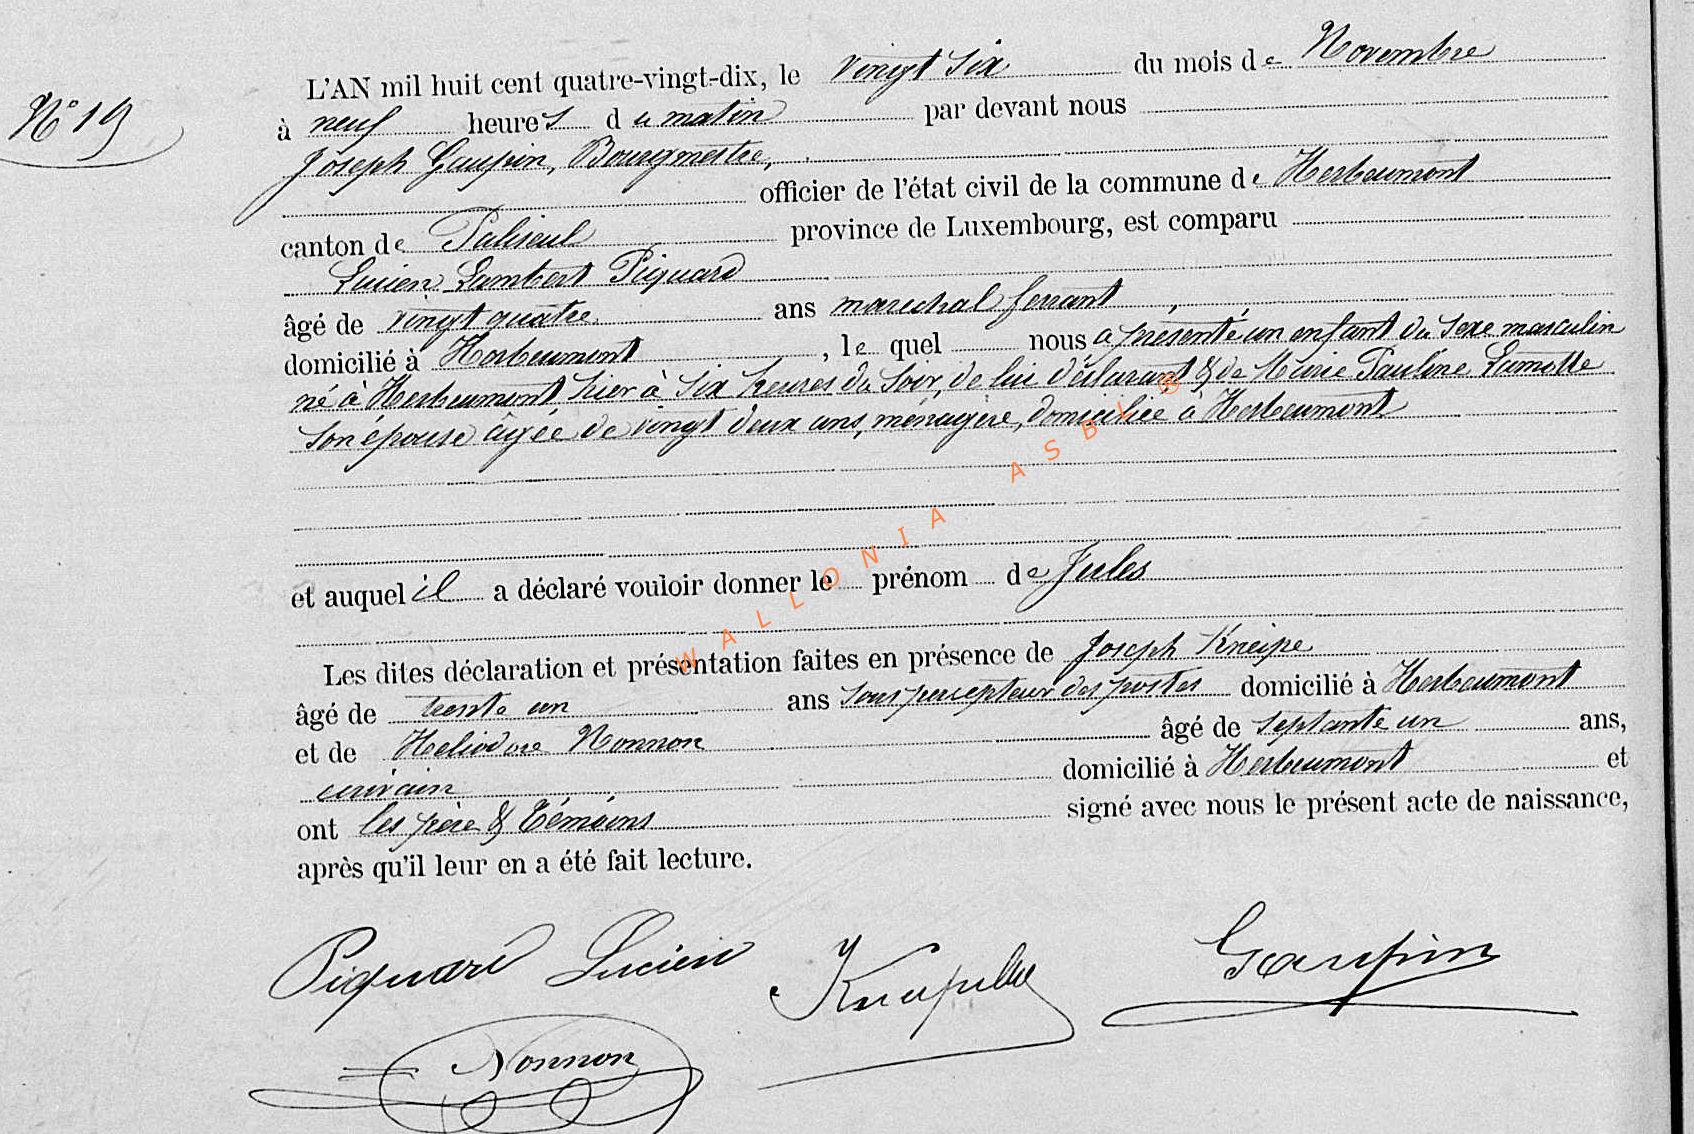 N° 19
L'AN mil huit cent quatre-vingt-dix, le vingt six du mois de Novembre
à neuf heures du matin par devant nous
Joseph Gaupin, Bourgmestre,
officier de l'état civil de la commune de Herbeumont
canton de Paliseul province de Luxembourg, est comparu
Lucien Lambert Piquard
âgé de vingt quatre ans marechal ferrant,
domicilié à Herbeumont, le quel nous a présenté un enfant du sexe masculin
né à Herbeumont hier à six heures du soir, de lui déclarant & de Marie Pauline Lamotte
son épouse âgée de vingt deux ans, ménagère, domiciliée à Herbeumont
et auquel il a déclaré vouloir donner le prénom de Jules
Les dites déclaration et présentation faites en présence de Joseph Kneipe
âgé de trente un ans sous percepteur des postes domicilié à Herbeumont
et de Heliodore Nonnon âgé de septante un ans,
écrivain domicilié à Herbeumont et
ont les père & témoins signé avec nous le présent acte de naissance,
après qu'il leur en a été fait lecture.
Piquard Lucien
Gaupin
Nonnon
WALLONIA ASBL ®